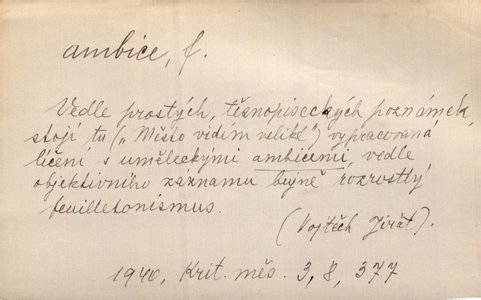 ambice, f.
Vedle prostých, těsnopiseckých poznámek,
stojí tu („Město vidím veliké") vypracovaná
líčení s uměleckými ambicemi, vedle
objektivního záznamu bujně rozrostlý
feuilletonismus.
(Vojtěch Jirát).
1940, Krit. měs. 3, 8, 377